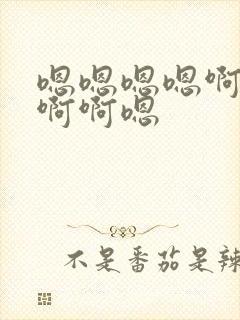 嗯嗯嗯嗯啊
啊啊嗯
不是番茄是辣